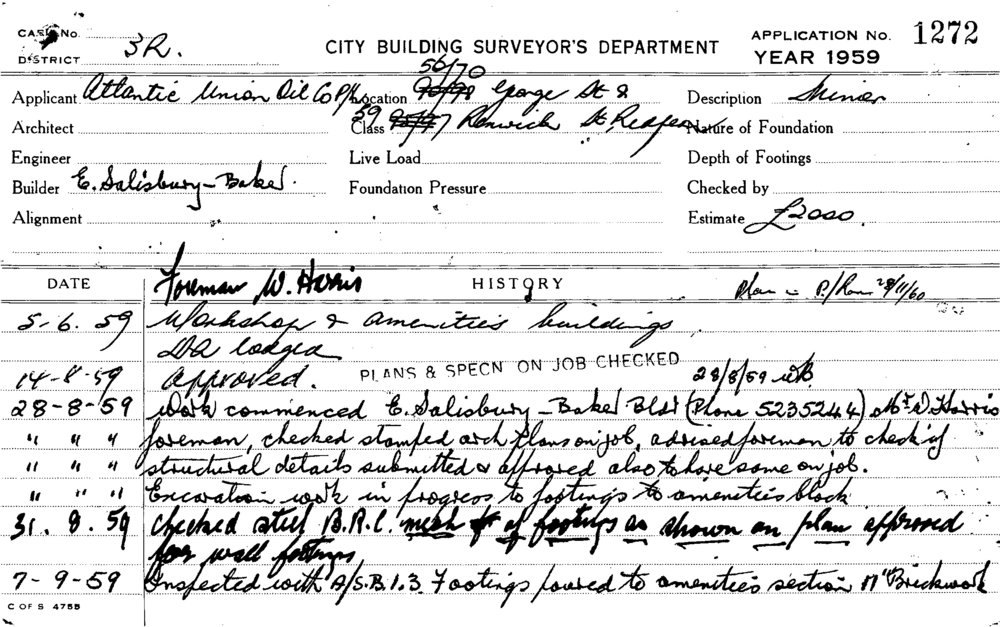 CASE No.
3R.
DISTRICT
CITY BUILDING SURVEYOR'S DEPARTMENT
APPLICATION No. 1272
YEAR 1959
56/70
Applicant Atlantic Union Oil Co P/L Location George St &
Description Minor
Architect
59
Class Renwick St, Redfern
Nature of Foundation
Engineer
Live Load
Depth of Footings
Builder E. Salisbury-Baker.
Foundation Pressure
Checked by
Alignment
Estimate £2000.
DATE
Foreman W. Harris
HISTORY
Plan in P./Room 28/11/60
5-6.59 Workshop & amenities buildings
DA lodged
14-8-59 Approved. PLANS & SPECN ON JOB CHECKED 28/8/59 WB.
28-8-59 Work commenced E. Salisbury-Baker Bldr (Phone 523524.4) Mr W. Harris
" " " foreman, checked stamped arch plans on job, advised foreman to check if
" " " structural details submitted & approved also to have same on job.
" " " Excavation work in progress to footings to amenities block
31.8.59 checked steel B.R.C. mesh of footings as shown on plan approved
for wall footings
7-9-59 Inspected with A/S.B.I.3. Footings poured to amenities section 11" Brickwork
C OF S 475B